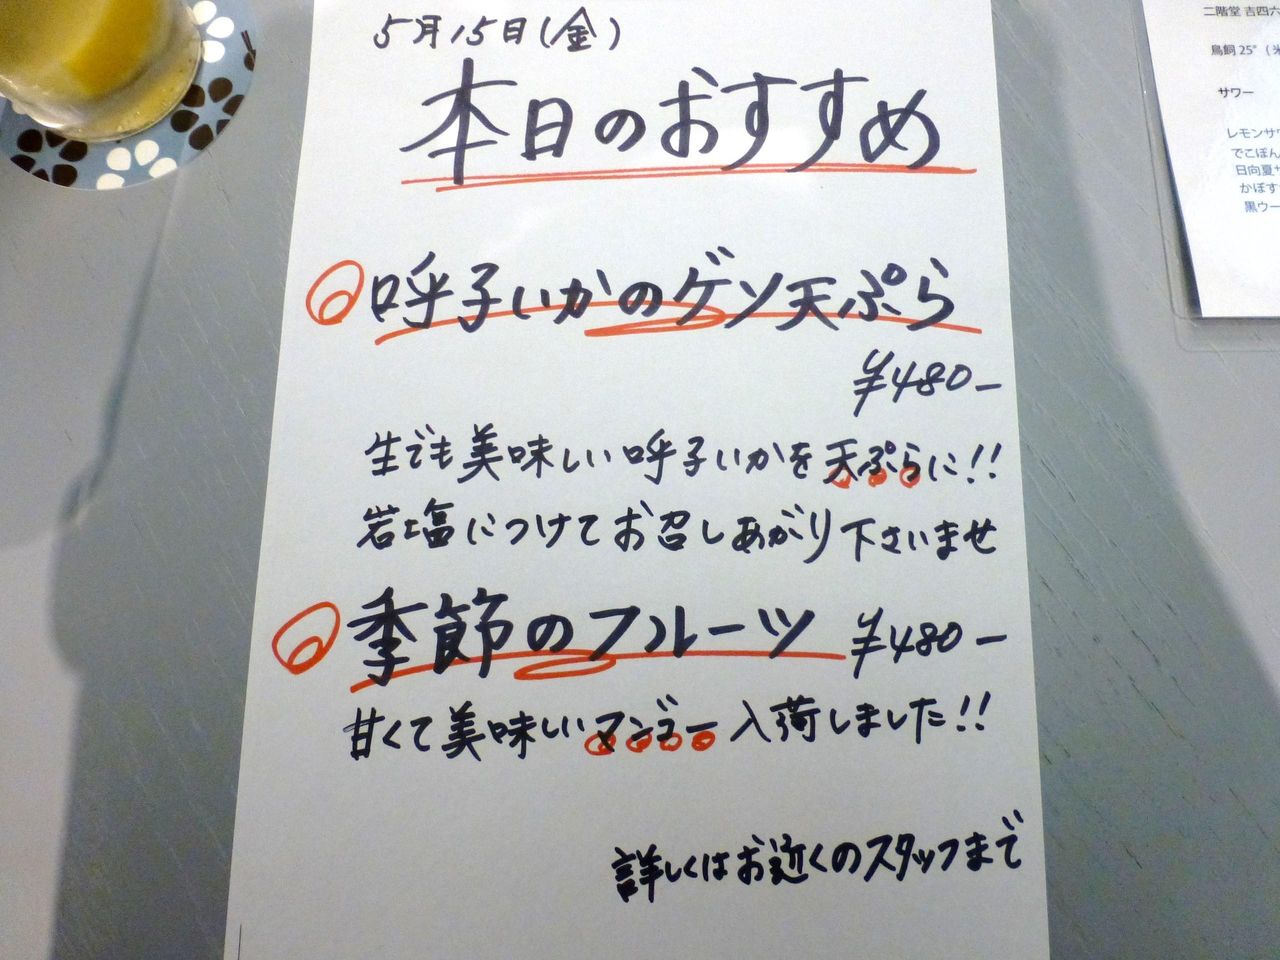 5月15日(金)
本日のおすすめ
呼子いかのゲソ天ぷら
¥480-
生でも美味しい呼子いかを天ぷらに!!
岩塩につけてお召しあがり下さいませ
季節のフルーツ ¥480-
甘くて美味しいマンゴー入荷しました!!
詳しくはお近くのスタッフまで
二階堂 吉四六
鳥飼 25°(米
サワー
レモンサワ
でこぽん
日向夏サ
かぼす
黒ウー